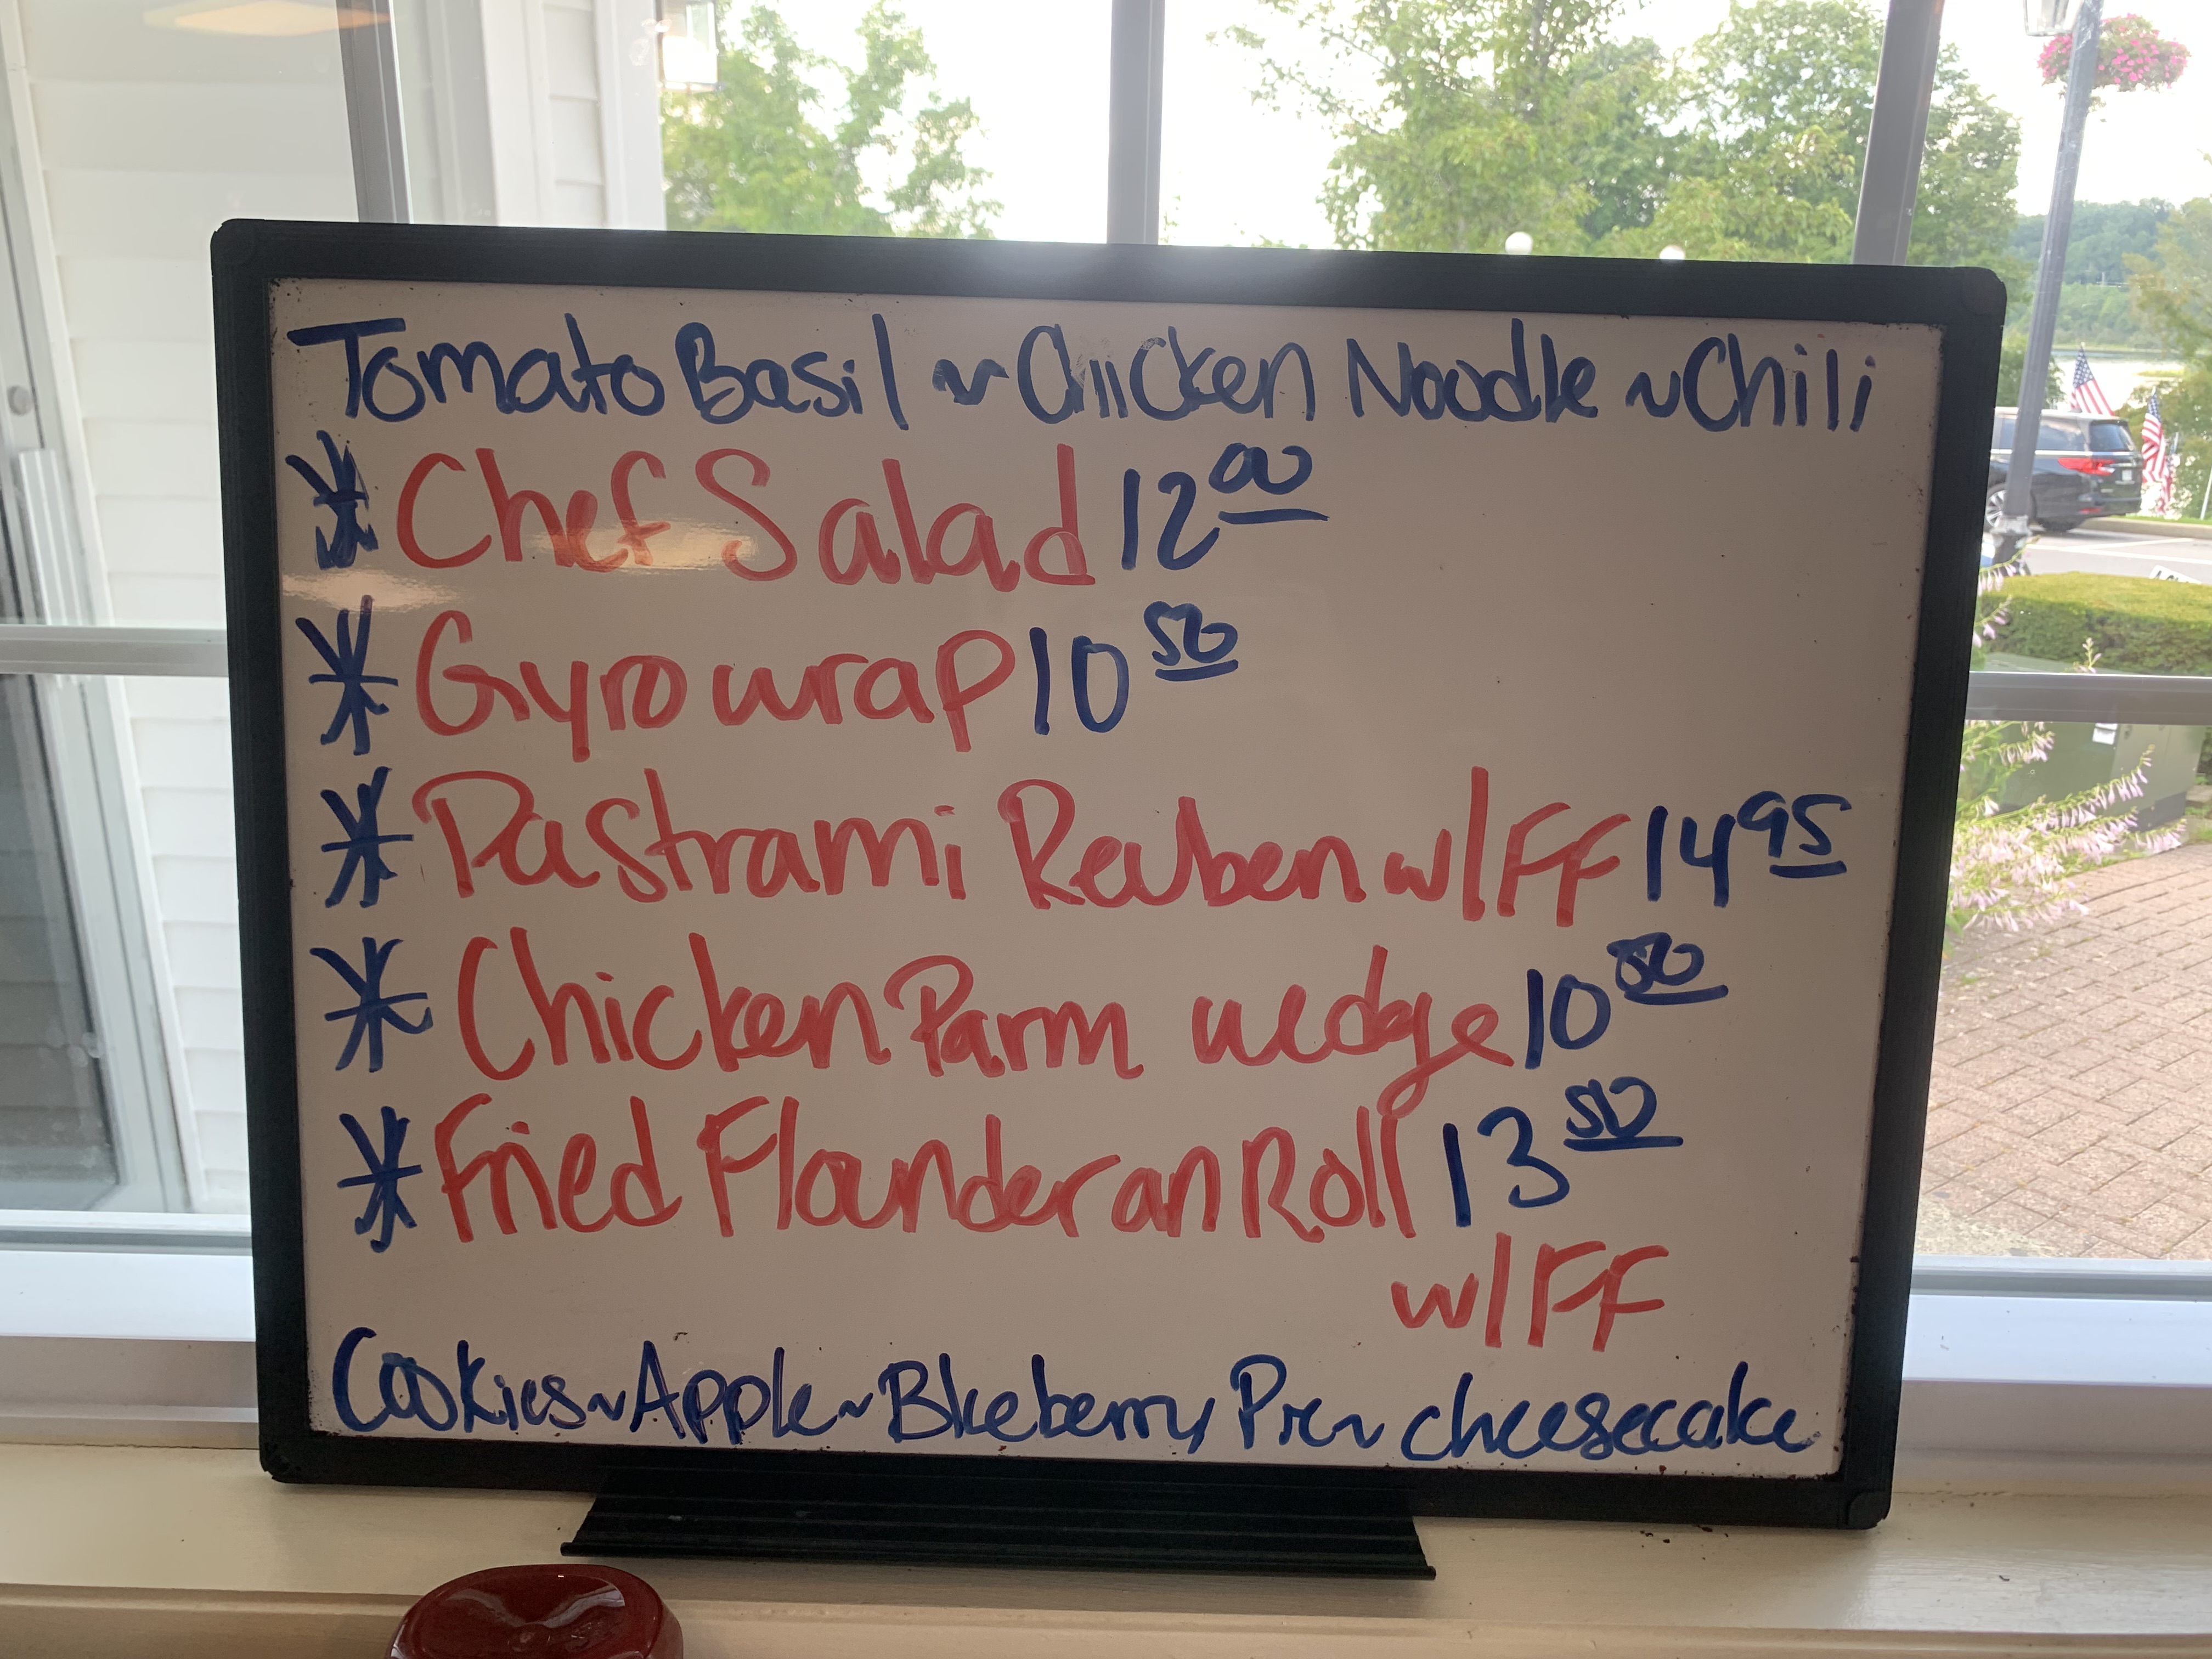 Tomato Basil ~ Chicken Noodle ~ Chili
* Chef Salad 12 00
* Gyro wrap 10 50
* Pastrami Reuben w/FF 14 95
* Chicken Parm wedge 10 50
* Fried Flounder on Roll 13 50
w/FF
Cookies ~ Apple ~ Blueberry Pie ~ cheesecake